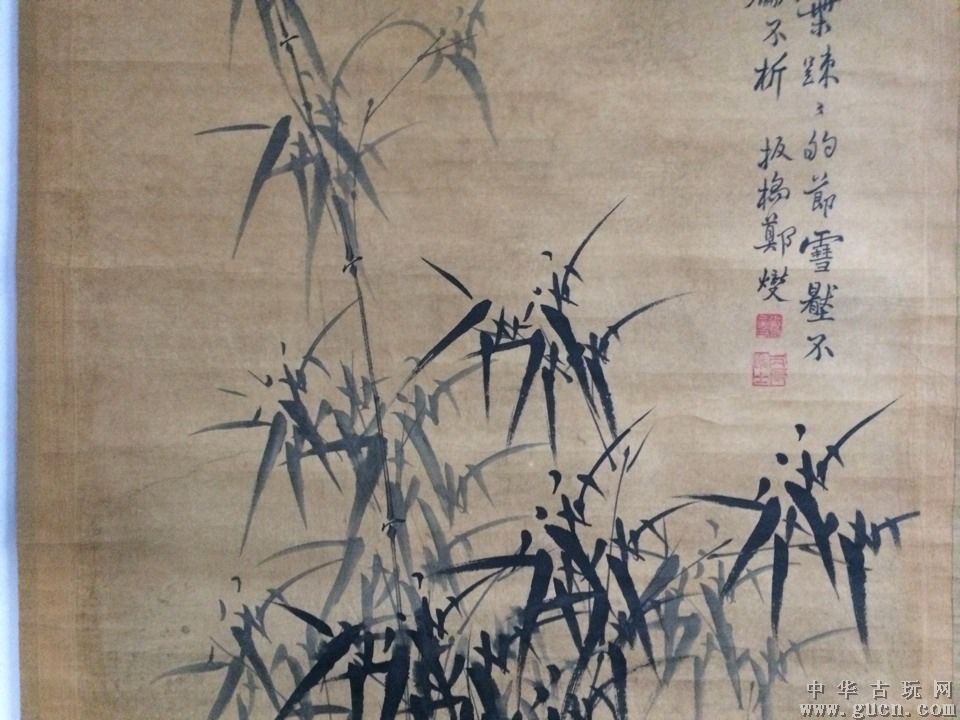 葉踈〻的節雪壓不
不折
板橋鄭燮
中华古玩网
www.gucn.com